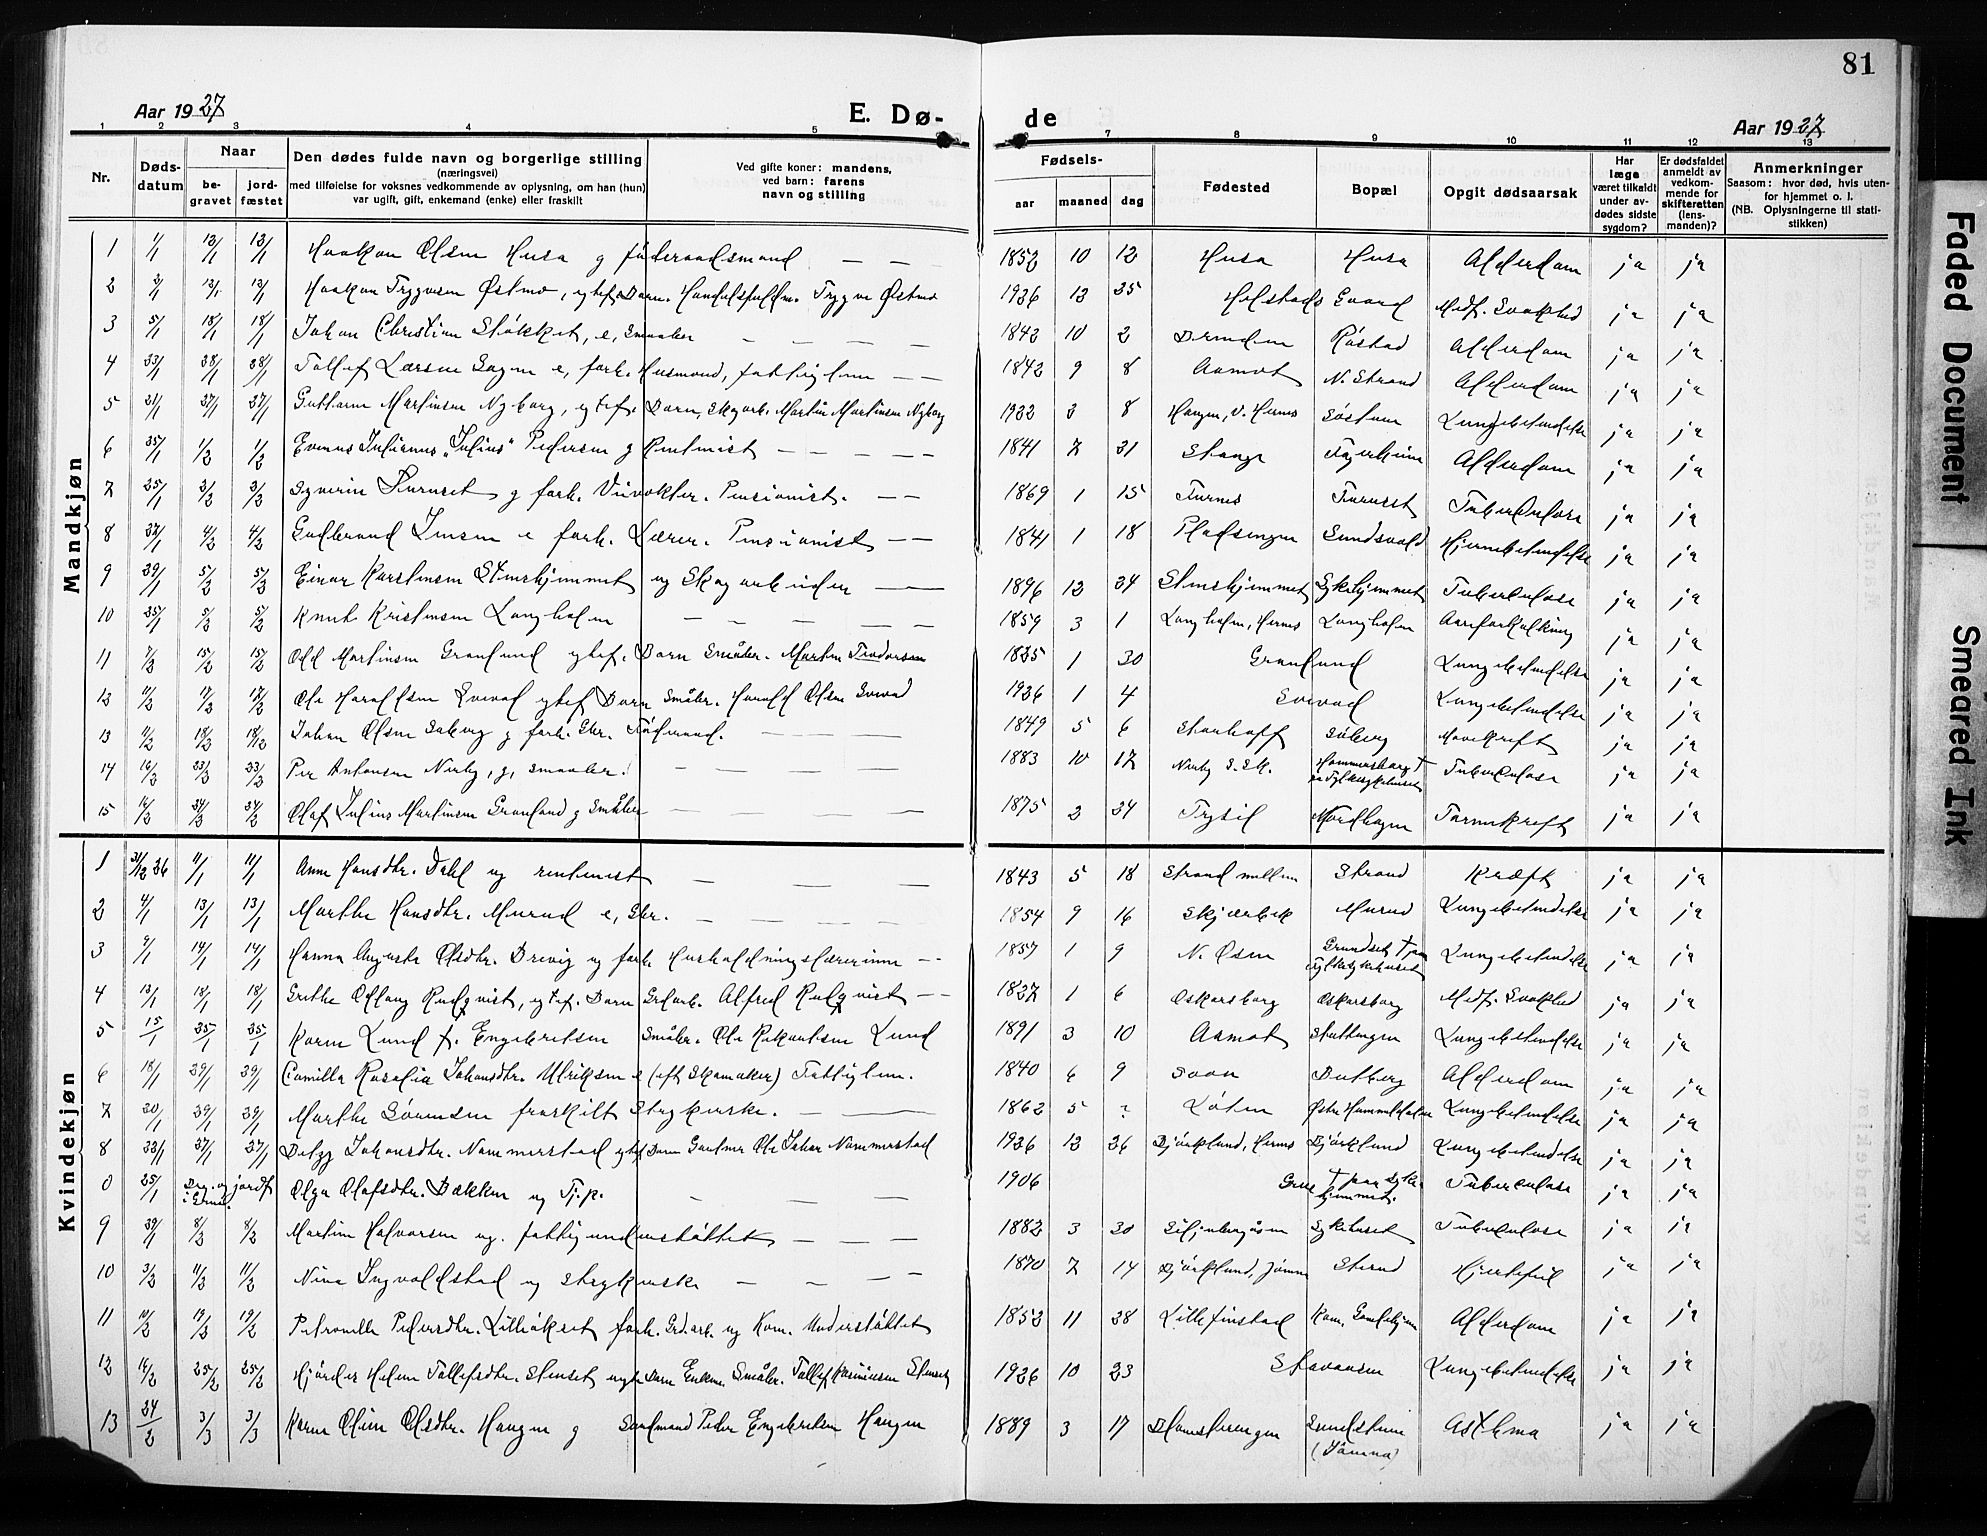 81
Aar 1927 E. Dø- de Aar 1927
1 2 3 4 5 6 7 8 9 10 11 12 13
Nr. Døds-datum Naar be-gravet jord-fæstet
Den dødes fulde navn og borgerlige stilling
(næringsvei)
med tilføielse for voksnes vedkommende av oplysning, om han (hun)
var ugift, gift, enkemand (enke) eller fraskilt
Ved gifte koner: mandens,
ved barn: farens
navn og stilling
Fødsels- aar maaned dag
Fødested Bopæl Opgit dødsaarsak
Har læge været tilkaldt under av-dødes sidste sygdom?
Er dødsfaldet anmeldt av vedkom-mende for skifteretten (lens-manden)?
Anmerkninger
Saasom: hvor død, hvis uten-for hjemmet o. l.
(NB. Oplysningerne til stati-stikken)
Mandkjøn
1 1/1 13/1 13/1 Haakon Olsen Husa g føderaadsmand — — 1852 10 12 Husa Husa Alderdom ja ja
2 13/1 13/1 Haakon Trygvesen Østmo, Barn. Trygve Østmo 1926 12 25 Gaard Medf. Svakhed ja ja
3 5/1 18/1 18/1 Johan Christian Støkket, e, Smaabr — — — 1842 10 2 Røstad Alderdom ja ja
4 23/1 28/1 28/1 Tollef Larsen e, forh. Husmand, fattiglem — — 1842 9 8 Aamot N. Strand Alderdom ja ja
5 21/1 27/1 27/1 Guttorm Martinsen Nyborg, Barn, Skogarb. Martin Martinsen Nyborg 1922 2 8 Haugen, v. Hernes Lungebetendelse ja ja
6 25/1 1/2 1/2 Julianus "Julius" Pedersen g Rentenist — — — — 1841 7 21 Stange Fagerheim Alderdom ja ja
7 25/1 3/2 3/2 Syverin Furuset g forh. Pensionist. — — 1869 1 15 Furnes Furuset Tuberkulose ja ja
8 27/1 4/2 4/2 Gudbrand Jensen e forh. Lærer. Pensionist — — 1841 1 18 Pladsengen Sundsvold Hjernebetendelse ja ja
9 29/1 5/2 5/2 Einar Karstensen Stenshjemmet ug Skogarbeider — — 1896 12 24 Stenshjemmet Sykehjemmet Tuberkulose ja ja
10 25/1 5/2 5/2 Knut Kristensen Langholen — — — — — 1859 3 1 Langholen, Hernes Langholen Aareforkalkning ja ja
11 7/2 15/2 15/2 Martinsen Grønlund Barn Småbr. Martin Teodorsen 1 30 Grønlund Lungebetendelse ja ja
12 11/2 17/2 17/2 Ole Haraldsen Sverad Barn Småbr. Harald Olsen Sverad 1926 1 4 Sverad Lungebetendelse ja ja
13 11/2 18/2 Johan Olsen Søberg g forh. Gbr. — — — 1849 5 6 Storhoff Søberg Mavekreft ja ja
14 16/2 23/2 23/2 Per Antonsen Nerby, g, Smaabr. — — — 1883 10 17 Nerby S. Sk. Hammersborg † Tuberkulose ja ja
15 14/2 24/2 24/2 Olaf Julius Martinsen Grønland g Småbr — — — 1875 2 24 Trysil Nordhagen Tarmkreft ja ja
Kvindekjøn
1 31/12 26 11/1 11/1 Anne Hansdtr. Dahl ug rentenist — — — 1843 5 18 Strand mellem Strand Kræft ja ja
2 4/1 13/1 13/1 Marthe Hansdtr. Murud e, Gbr. — — — 1854 9 16 Skjærbek Murud Lungebetendelse ja ja
3 9/1 14/1 14/1 Hanna Auguste Olsdtr. Brevig ug forh Husholdningslærerinne — — 1857 1 9 N. Osen Grundset † paa Fylkesykehuset Lungebetendelse ja ja
4 13/1 18/1 18/1 Grethe Oddlaug Rudqvist, Barn Grdarb. Alfred Rudqvist — — 1 6 Oskarsborg Oskarsborg Medf. Svakhed ja ja
5 15/1 25/1 25/1 Karen Lund f. Engebretsen Småbr. Ole Lund 1891 3 10 Aamot Lungebetendelse ja ja
6 18/1 29/1 29/1 Camilla Rosalia Johansdtr. Ulriksen e (eft Skomaker) Fattiglem. 1840 6 9 Alderdom ja ja
7 20/1 29/1 29/1 Marthe Sørensen fraskilt Strykerske. — — 1862 5 ? Løten Østre Lungebetendelse ja ja
8 27/1 27/1 Johansdtr. Nommerstad Barn Ole Johan Nommerstad 1926 12 26 Bjørklund, Hernes Bjørklund Lungebetendelse ja ja
0 25/1 Beg. og jordf i Grue. Olga Olafsdtr. Bækken ug Tj.p. — — — 1906 Grue † paa Syke-hjemmet. Tuberkulose ja ja
9 29/1 8/2 8/2 Martine Halvorsen ug. fattigunderstøttet — — — 1882 3 20 Sykehuset Tuberkulose ja ja
10 3/2 11/2 11/2 Nina Ingvaldstad ug strykerske — — — — 1870 7 14 Bjørklund, Jømna Hjertefeil ja ja
11 10/2 19/2 19/2 Petronelle Pedersdtr. Lilleøkset forh. Grdarb. ug Kom. Understøttet 1852 11 28 Lillefinstad Kom. Gamlehjem Alderdom ja ja
12 14/2 25/2 25/2 Hjørdis Helene Tollefsdtr. Stenset Barn Småbr. Tollef Stenset 1926 10 23 Stavaasen Lungebetendelse ja ja
13 24/2 3/3 3/3 Karen Oline Olsdtr. Haugen g Peder Engebretsen Haugen 1889 3 17 Sundsheim (Jømna) Asthma ja ja
Faded Document
Smeared Ink